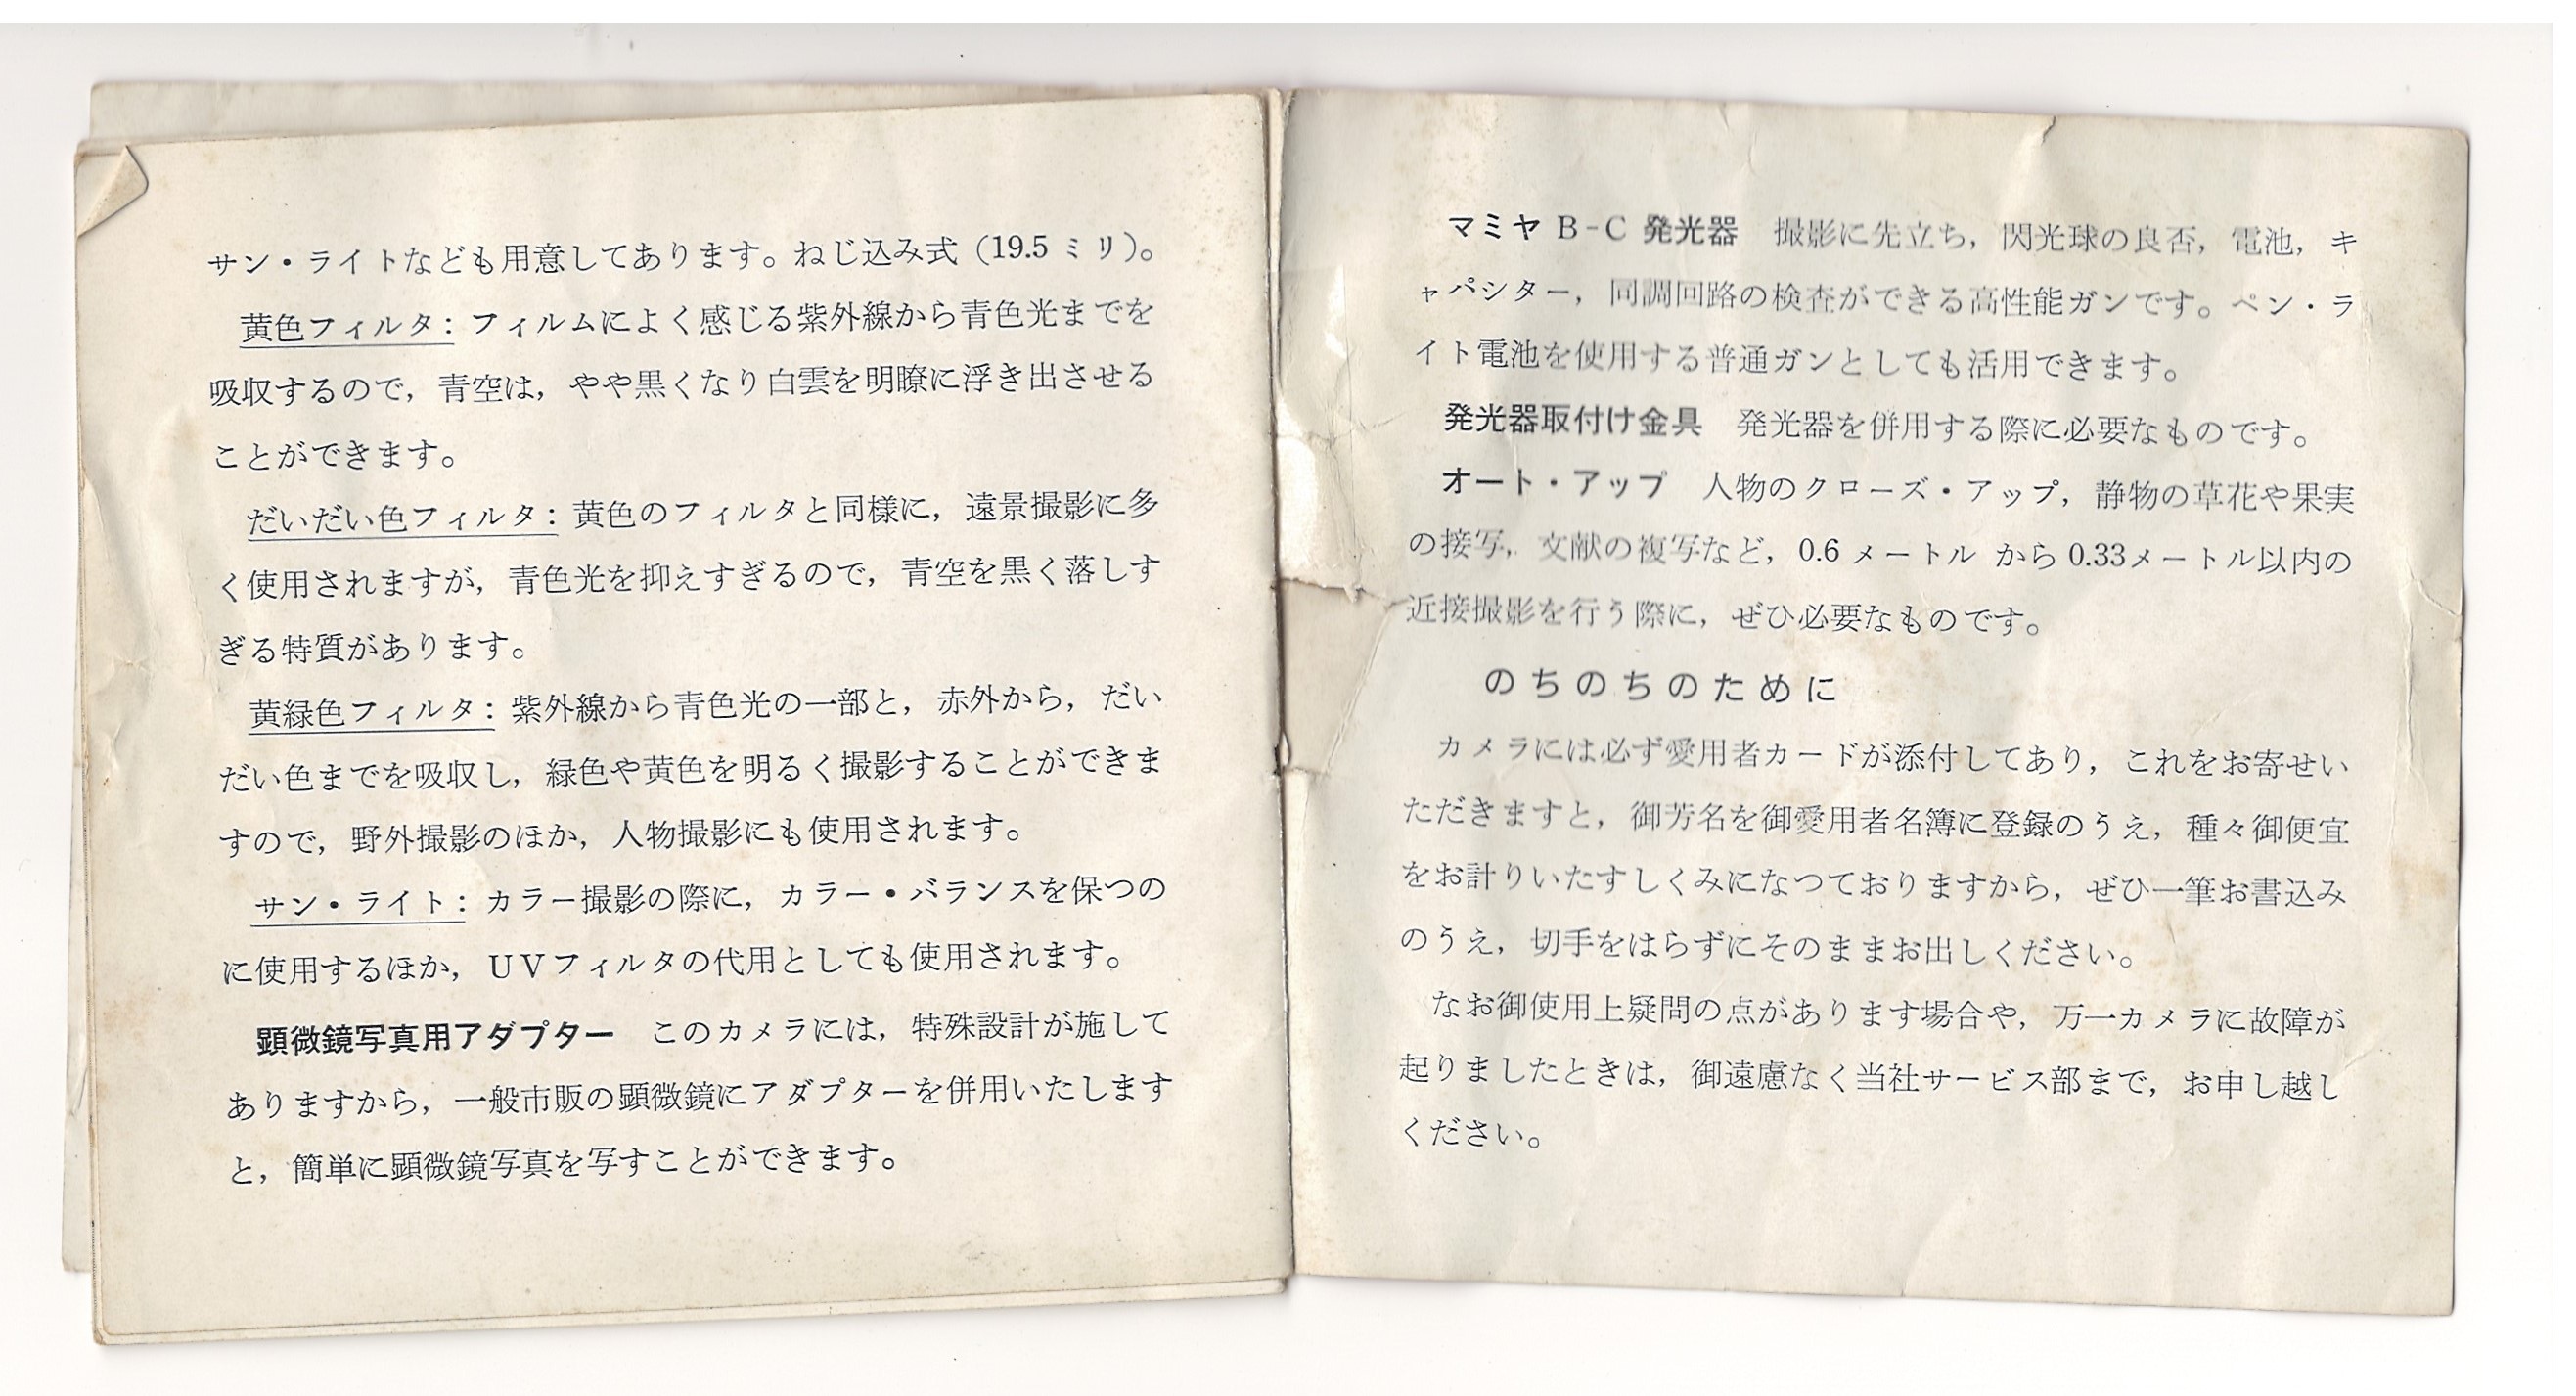 サン・ライトなども用意してあります。ねじ込み式（19.5 ミリ）。
黄色フィルタ：フィルムによく感じる紫外線から青色光までを
吸収するので，青空は，やや黒くなり白雲を明瞭に浮き出させる
ことができます。
だいだい色フィルタ：黄色のフィルタと同様に，遠景撮影に多
く使用されますが，青色光を抑えすぎるので，青空を黒く落しす
ぎる特質があります。
黄緑色フィルタ：紫外線から青色光の一部と，赤外から，だい
だい色までを吸収し，緑色や黄色を明るく撮影することができま
すので，野外撮影のほか，人物撮影にも使用されます。
サン・ライト：カラー撮影の際に，カラー・バランスを保つの
に使用するほか，UVフィルタの代用としても使用されます。
顕微鏡写真用アダプター　このカメラには，特殊設計が施して
ありますから，一般市販の顕微鏡にアダプターを併用いたします
と，簡単に顕微鏡写真を写すことができます。
マミヤ B-C 発光器　撮影に先立ち，閃光球の良否，電池，キ
ャパシター，同調回路の検査ができる高性能ガンです。ペン・ラ
イト電池を使用する普通ガンとしても活用できます。
発光器取付け金具　発光器を併用する際に必要なものです。
オート・アップ　人物のクローズ・アップ，静物の草花や果実
の接写，文献の複写など，0.6 メートル から 0.33メートル以内の
近接撮影を行う際に，ぜひ必要なものです。
のちのちのために
カメラには必ず愛用者カードが添付してあり，これをお寄せい
ただきますと，御芳名を御愛用者名簿に登録のうえ，種々御便宜
をお計りいたすしくみになつておりますから，ぜひ一筆お書込み
のうえ，切手をはらずにそのままお出しください。
なお御使用上疑問の点があります場合や，万一カメラに故障が
起りましたときは，御遠慮なく当社サービス部まで，お申し越し
ください。